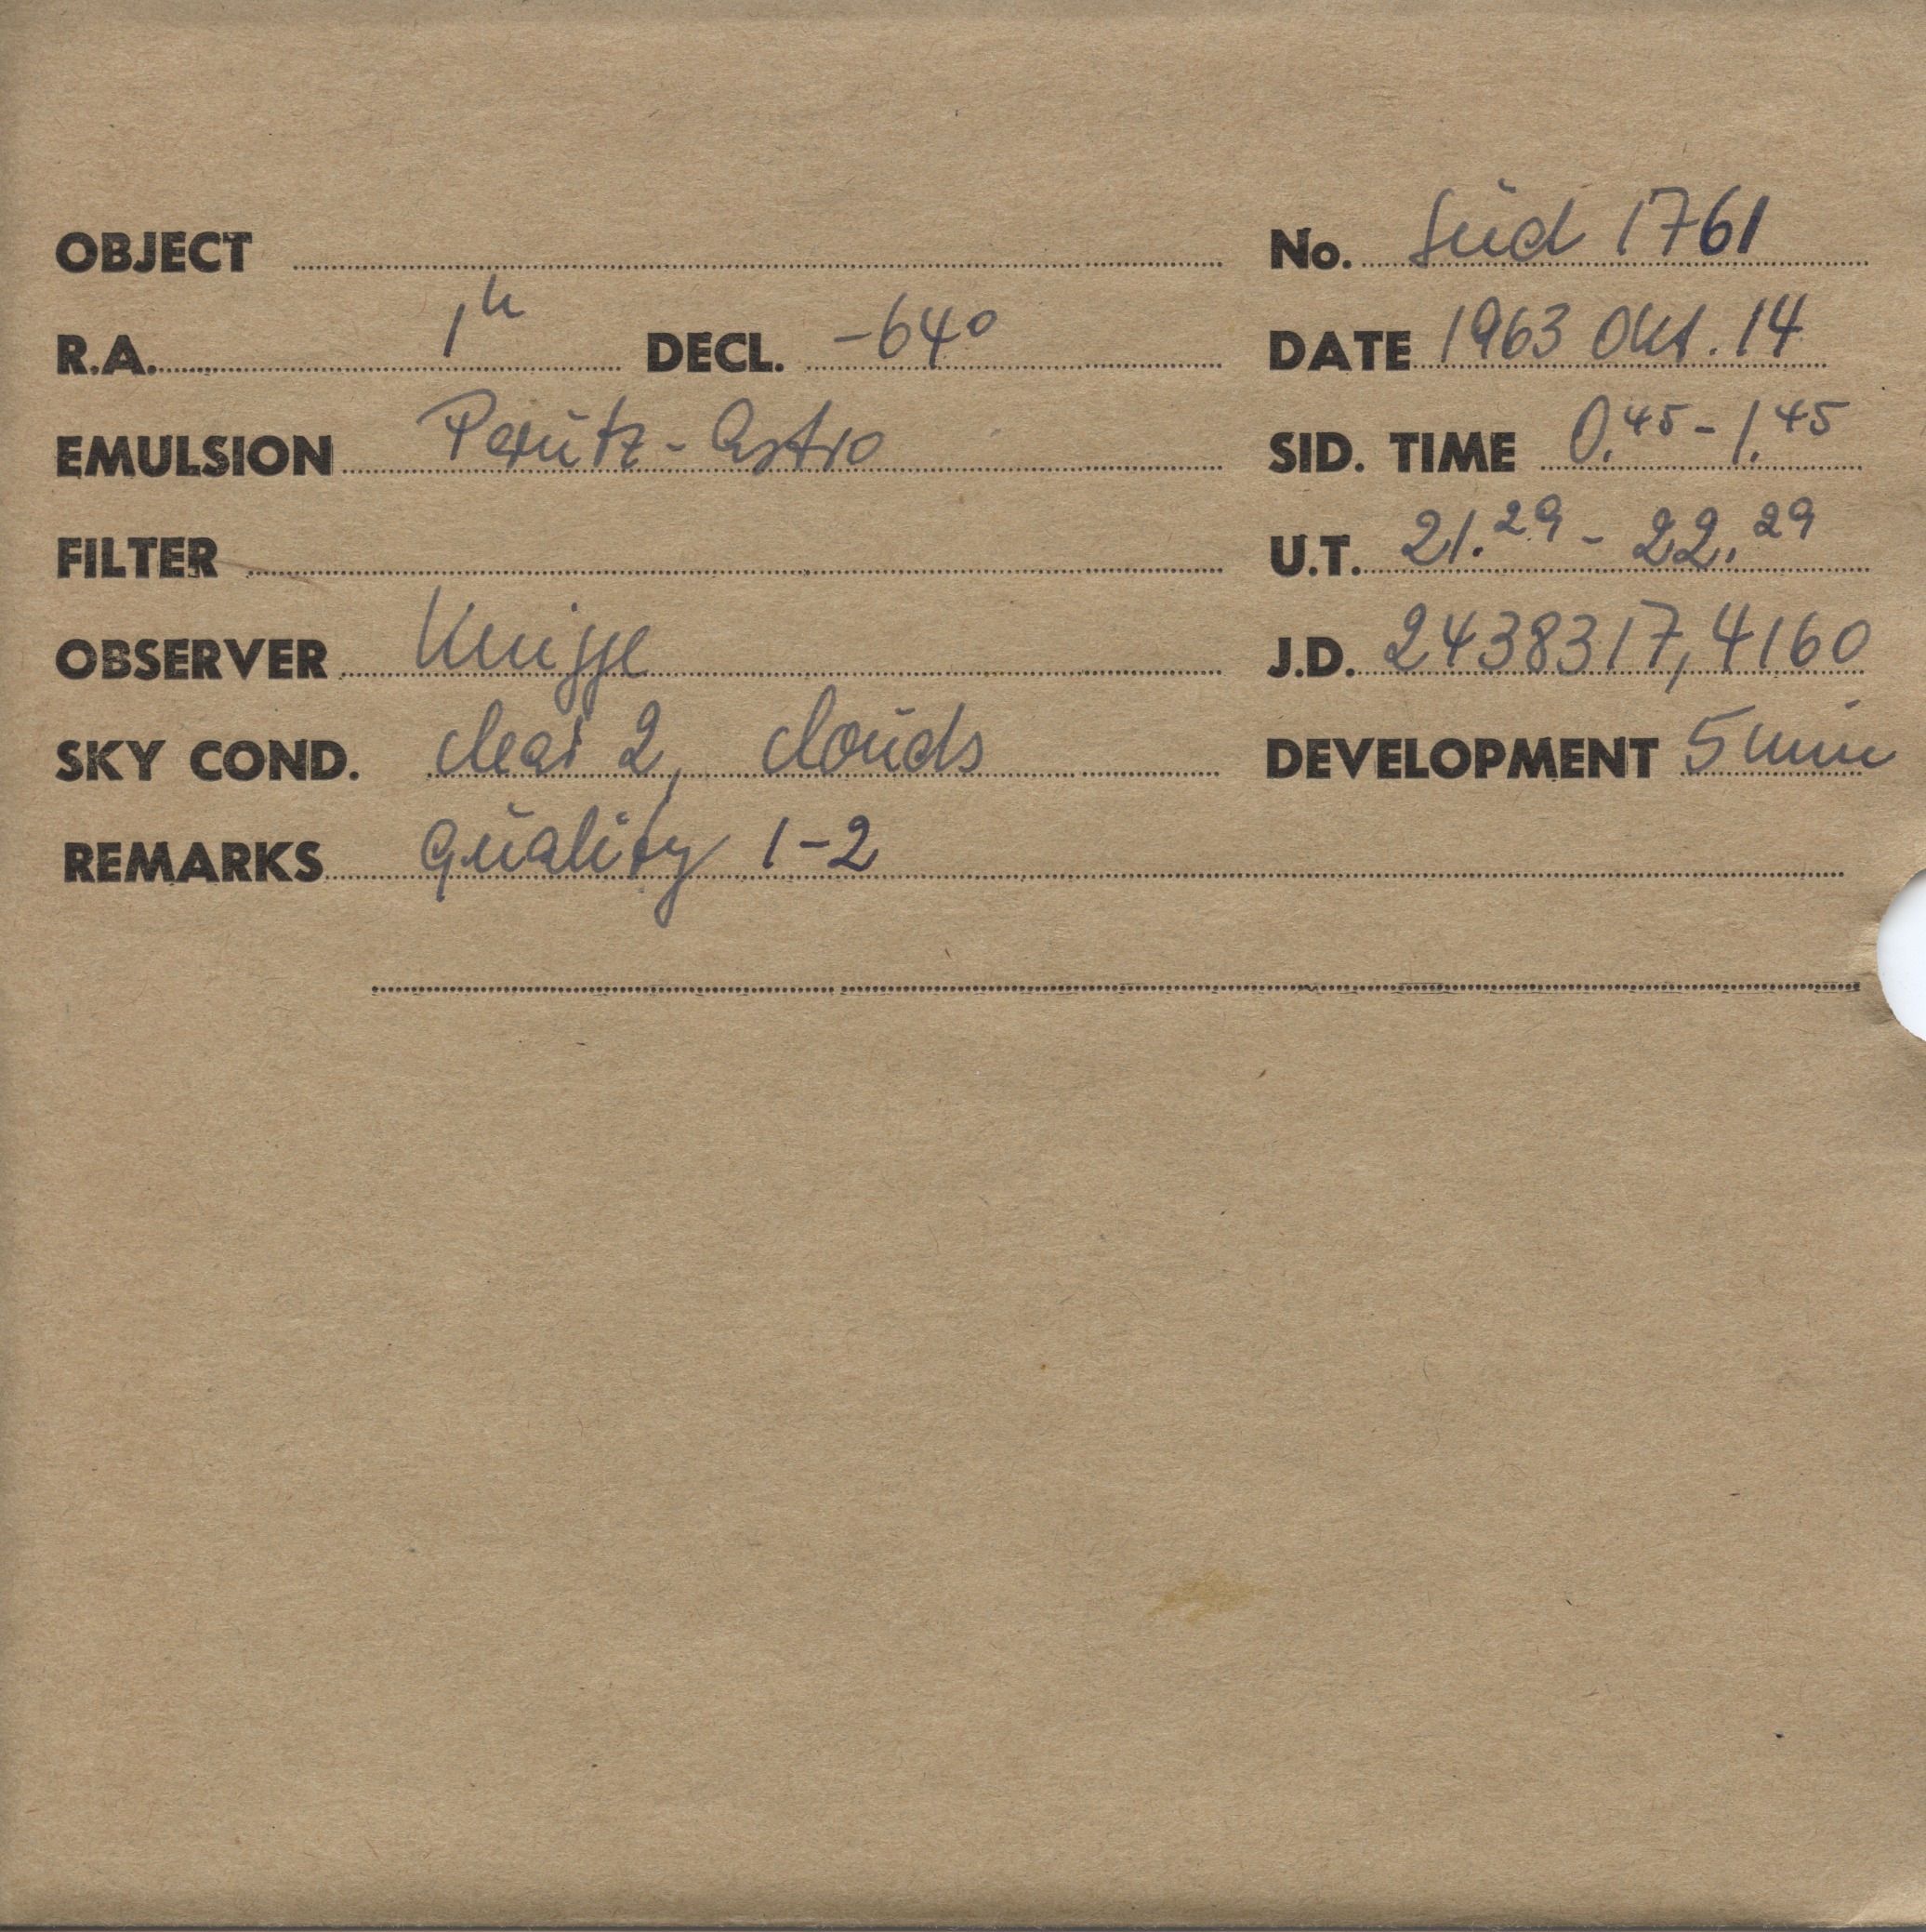 OBJECT No. Süd 1761
R.A. 1h DECL. -64° DATE 1963 Okt. 14
EMULSION Perutz-Astro SID. TIME 0.45 - 1.45
FILTER U.T. 21.29 - 22.29
OBSERVER Knigge J.D. 2438317,4160
SKY COND. clear 2, clouds DEVELOPMENT 5 min
REMARKS quality 1-2